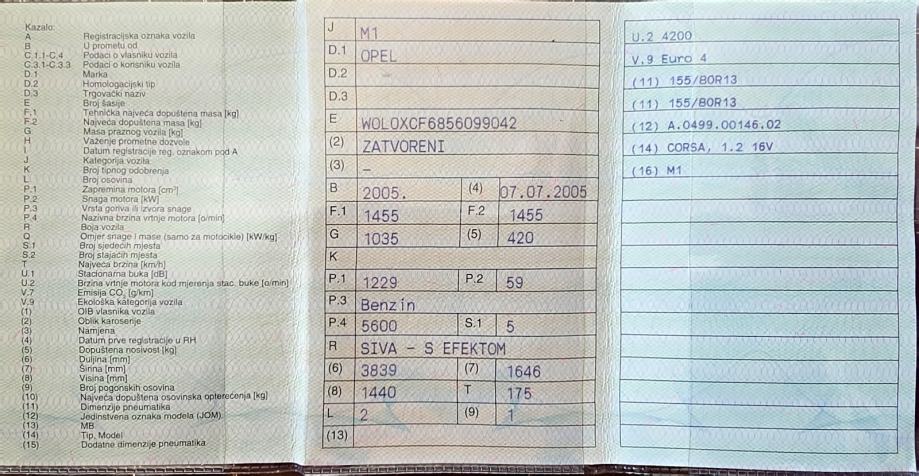 Kazalo:
A Registracijska oznaka vozila
B U prometu od
C.1.1-C.4 Podaci o vlasniku vozila
C.3.1-C.3.3 Podaci o korisniku vozila
D.1 Marka
D.2 Homologacijski tip
D.3 Trgovački naziv
E Broj šasije
F.1 Tehnička najveća dopuštena masa [kg]
F.2 Najveća dopuštena masa [kg]
G Masa praznog vozila [kg]
H Važenje prometne dozvole
I Datum registracije reg. oznakom pod A
J Kategorija vozila
K Broj tipnog odobrenja
L Broj osovina
P.1 Zapremina motora [cm³]
P.2 Snaga motora [kW]
P.3 Vrsta goriva ili izvora snage
P.4 Nazivna brzina vrtnje motora [o/min]
R Boja vozila
Q Omjer snage i mase (samo za motocikle) [kW/kg]
S.1 Broj sjedećih mjesta
S.2 Broj stajaćih mjesta
T Najveća brzina [km/h]
U.1 Stacionarna buka [dB]
U.2 Brzina vrtnje motora kod mjerenja stac. buke [o/min]
V.7 Emisija CO₂ [g/km]
V.9 Ekološka kategorija vozila
(1) OIB vlasnika vozila
(2) Oblik karoserije
(3) Namjena
(4) Datum prve registracije u RH
(5) Dopuštena nosivost [kg]
(6) Duljina [mm]
(7) Širina [mm]
(8) Visina [mm]
(9) Broj pogonskih osovina
(10) Najveća dopuštena osovinska opterećenja [kg]
(11) Dimenzije pneumatika
(12) Jedinstvena oznaka modela (JOM)
(13) MB
(14) Tip, Model
(15) Dodatne dimenzije pneumatika
J M1
D.1 OPEL
D.2
D.3
E W0L0XCF6856099042
(2) ZATVORENI
(3) –
B 2005. (4) 07.07.2005
F.1 1455 F.2 1455
G 1035 (5) 420
K
P.1 1229 P.2 59
P.3 Benzin
P.4 5600 S.1 5
R SIVA - S EFEKTOM
(6) 3839 (7) 1646
(8) 1440 T 175
L 2 (9) 1
(13)
U.2 4200
V.9 Euro 4
(11) 155/80R13
(11) 155/80R13
(12) A.0499.00146.02
(14) CORSA, 1.2 16V
(16) M1